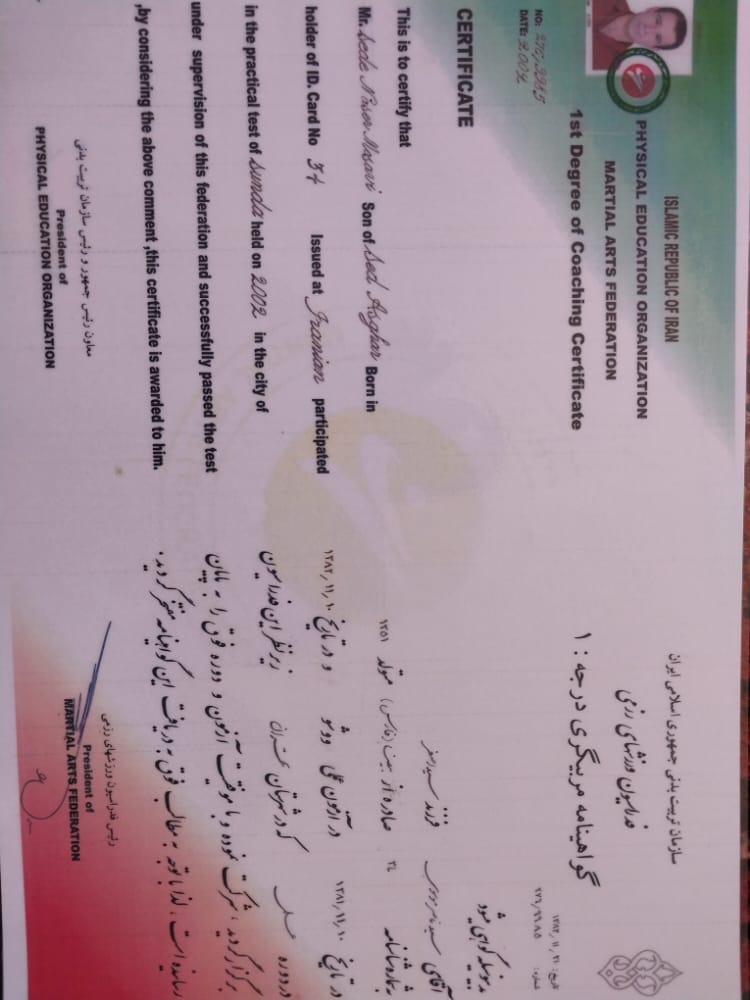 ISLAMIC REPUBLIC OF IRAN
PHYSICAL EDUCATION ORGANIZATION
MARTIAL ARTS FEDERATION
1st Degree of Coaching Certificate
NO:
DATE:
CERTIFICATE
This is to certify that
Mr. Son of Sed Asghar Born in
holder of ID. Card No 34 Issued at Iranian participated
in the practical test of Sunda held on 2002 in the city of
under supervision of this federation and successfully passed the test
,by considering the above comment ,this certificate is awarded to him.
معاون رئیس جمهور و رئیس سازمان تربیت بدنی
President of
PHYSICAL EDUCATION ORGANIZATION
سازمان تربیت بدنی جمهوری اسلامی ایران
فدراسیون ورزشهای رزمی
گواهینامه مربیگری درجه : ۱
تاریخ:
شماره:
بدینوسیله گواهی میشود
آقای فرزند سیداصغر
بشماره شناسنامه ۳۴ صادره از متولد ۱۳۵۱
در تاریخ ۱۳۸۱,۱۱,۱۰ در آزمون و در تاریخ ۱۳۸۲,۱۱,۱۰
در دوره که در شهرستان زیر نظر این فدراسیون
برگزار گردید ، شرکت نموده و با موفقیت آزمون و دوره فوق را به پایان
رسانده است ، لذا با توجه به مطالب فوق به دریافت این گواهینامه مفتخر گردید.
رئیس فدراسیون ورزشهای رزمی
President of
MARTIAL ARTS FEDERATION